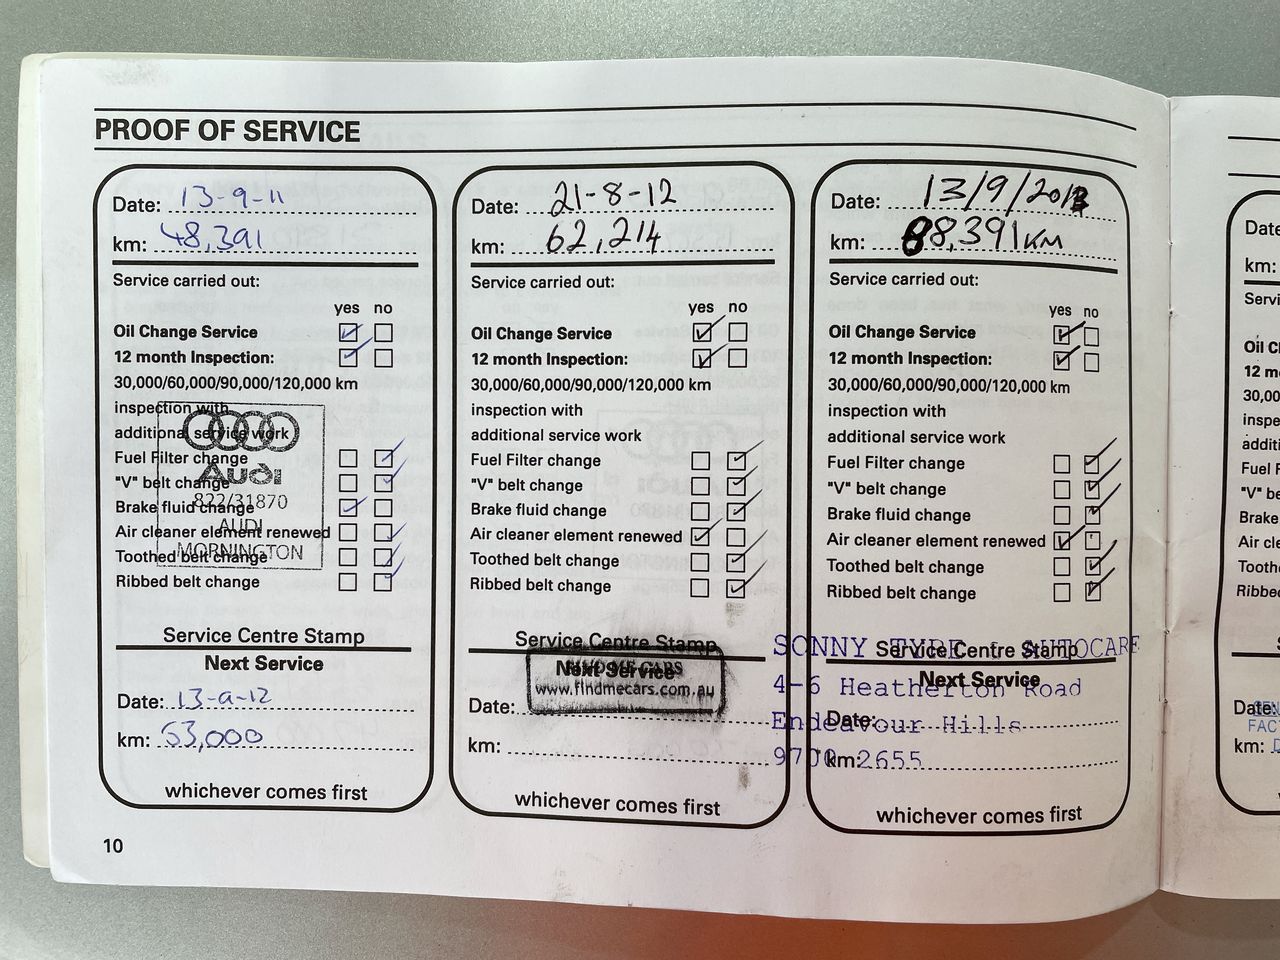 PROOF OF SERVICE
Date: 13-9-11
km: 48,391
Service carried out:
yes no
Oil Change Service
12 month Inspection:
30,000/60,000/90,000/120,000 km
inspection with
additional service work
Fuel Filter change
"V" belt change
Brake fluid change
Air cleaner element renewed
Toothed belt change
Ribbed belt change
Audi
822/31870
AUDI
MORNINGTON
Service Centre Stamp
Next Service
Date: 13-9-12
km: 63,000
whichever comes first
10
Date: 21-8-12
km: 62,214
Service carried out:
yes no
Oil Change Service
12 month Inspection:
30,000/60,000/90,000/120,000 km
inspection with
additional service work
Fuel Filter change
"V" belt change
Brake fluid change
Air cleaner element renewed
Toothed belt change
Ribbed belt change
Service Centre Stamp
Next Service
FINDMECARS
www.findmecars.com.au
Date:
km:
whichever comes first
Date: 13/9/2013
km: 88,391KM
Service carried out:
yes no
Oil Change Service
12 month Inspection:
30,000/60,000/90,000/120,000 km
inspection with
additional service work
Fuel Filter change
"V" belt change
Brake fluid change
Air cleaner element renewed
Toothed belt change
Ribbed belt change
Service Centre Stamp
Next Service
SONNY TYRE AUTOCARE
4-6 Heatherton Road
Endeavour Hills
9700 2655
Date:
km:
whichever comes first
Date
km:
Servi
Oil C
12 m
30,00
inspe
additi
Fuel F
"V" be
Brake
Air cle
Tooth
Ribbed
Date:
km: